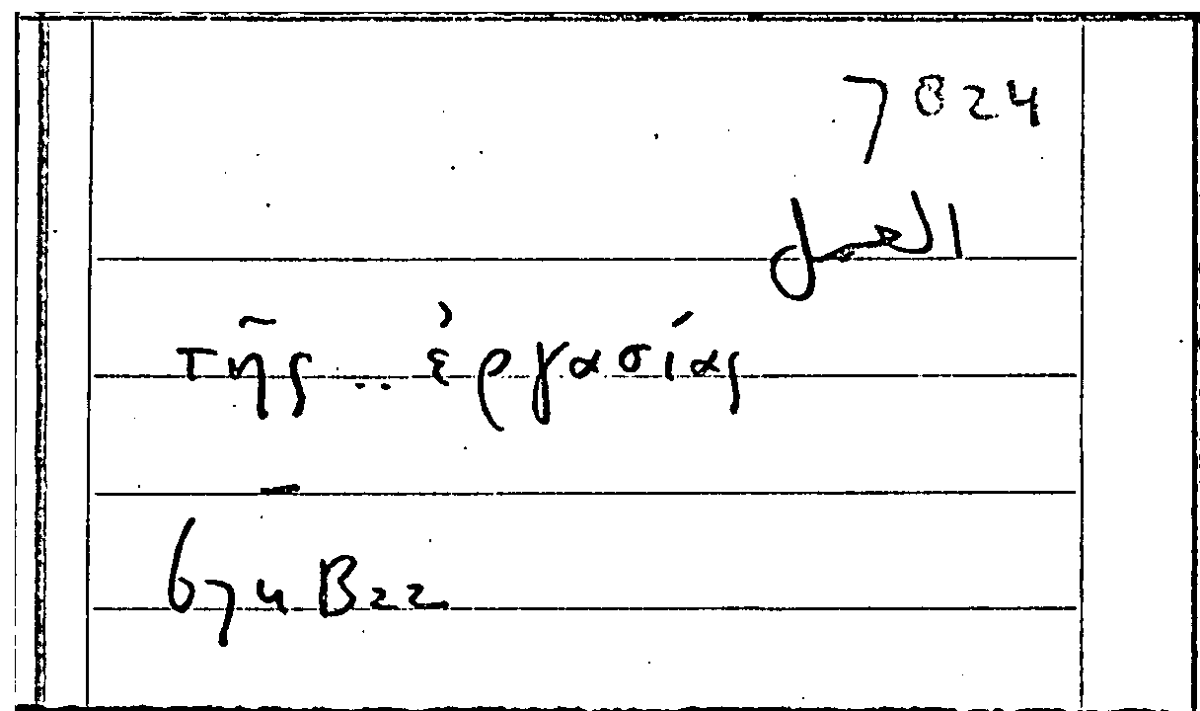 7824
العمل
τῆς .. ἐργασίας
674 B22